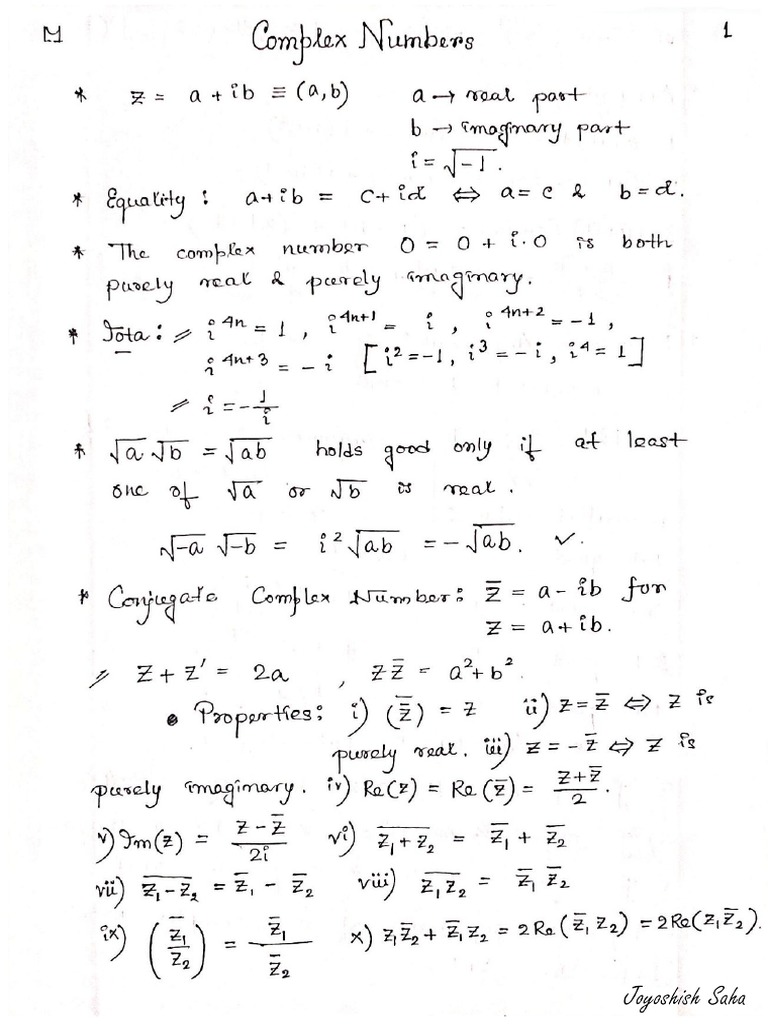 M Complex Numbers 1
* z = a + ib ≡ (a,b) a → real part
b → imaginary part
i = √-1.
* Equality : a+ib = c+id ⇔ a=c & b=d.
* The complex number 0 = 0 + i·0 is both
purely real & purely imaginary.
* Iota : // i^{4n} = 1 , i^{4n+1} = i , i^{4n+2} = -1 ,
i^{4n+3} = -i [i^2=-1, i^3=-i, i^4=1]
// i = -1/i
* √a √b = √ab holds good only if at least
one of √a or √b is real.
√-a √-b = i^2 √ab = -√ab. ✓.
* Conjugate Complex Number: z̄ = a-ib for
z = a+ib.
// z + z' = 2a , z z̄ = a^2+b^2.
• Properties: i) (z̄) = z ii) z = z̄ ⇔ z is
purely real. iii) z = -z̄ ⇔ z is
purely imaginary. iv) Re(z) = Re(z̄) = (z+z̄)/2.
v) Im(z) = (z-z̄)/2i vi) \overline{z₁+z₂} = z̄₁ + z̄₂
vii) \overline{z₁-z₂} = z̄₁ - z̄₂ viii) \overline{z₁z₂} = z̄₁ z̄₂
ix) (z̄₁/z₂) = z̄₁/z̄₂ x) z₁z̄₂ + z̄₁z₂ = 2Re(z̄₁z₂) = 2Re(z₁z̄₂).
Joyoshish Saha